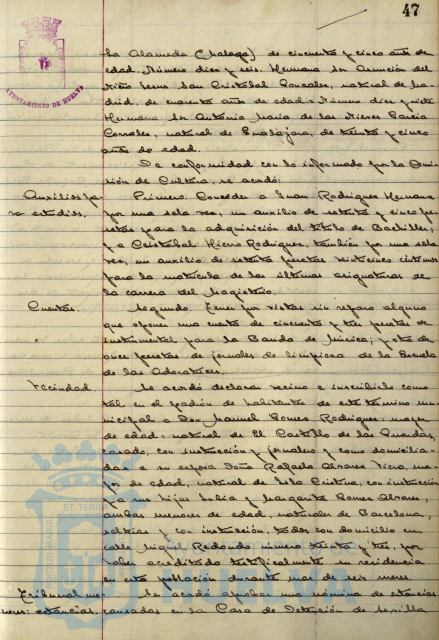 47
AYUNTAMIENTO DE HUELVA
la Alameda (Malaga) de cincuenta y cinco años de
edad. Número diez y seis. Hermana Sor Asunción del
Niño Jesus San Cristobal Gonzalez, natural de Ma-
drid, de cuarenta años de edad. Número diez y siete
Hermana Sor Antonia Maria de las Nieves Garcia
Corrales, natural de Guadajara, de treinta y cinco
años de edad.
De conformidad con lo informado por la Comi-
sión de Cultura, se acordó:
Auxilios pa-
ra estudios.
Primero. Conceder a Juan Rodriguez Hermana
por una sola vez, un auxilio de setenta y cinco pe-
setas para la adquisición del titulo de Bachiller;
y a Cristóbal Hierro Rodriguez, también por una sola
vez, un auxilio de setenta pesetas veinticinco céntimos
para la matricula de las últimas asignaturas de
la carrera del Magisterio.
Cuentas.
Segundo. Tener por vistas sin reparo alguno
que oponer una cuenta de cincuenta y tres pesetas de
instrumental para la Banda de Música; y otra de
once pesetas de jornales de limpieza de la Escuela
de las Adoratrices.
Vecindad.
Se acordó declarar vecino e inscribirlo como
tal en el padrón de habitantes de este término mu-
nicipal a Don Manuel Gomez Rodriguez; mayor
de edad, natural de El Castillo de las Guardas,
casado, con instrucción y jornalero y como domicilia-
das a su esposa Doña Rafaela Alvarez Viera, ma-
yor de edad, natural de Isla Cristina, con instrucción
y a sus hijas Julia y Margarita Gomez Alvarez,
ambas menores de edad, naturales de Barcelona,
solteras y con instrucción, todos con domicilio en
calle Miguel Redondo número treinta y tres, por
haber acreditado testificalmente su residencia
en esta población durante mas de seis meses.
Tribunal me-
nores: estancias.
Se acordó aprobar una nómina de estancias
causadas en la Casa de Detención de Sevilla